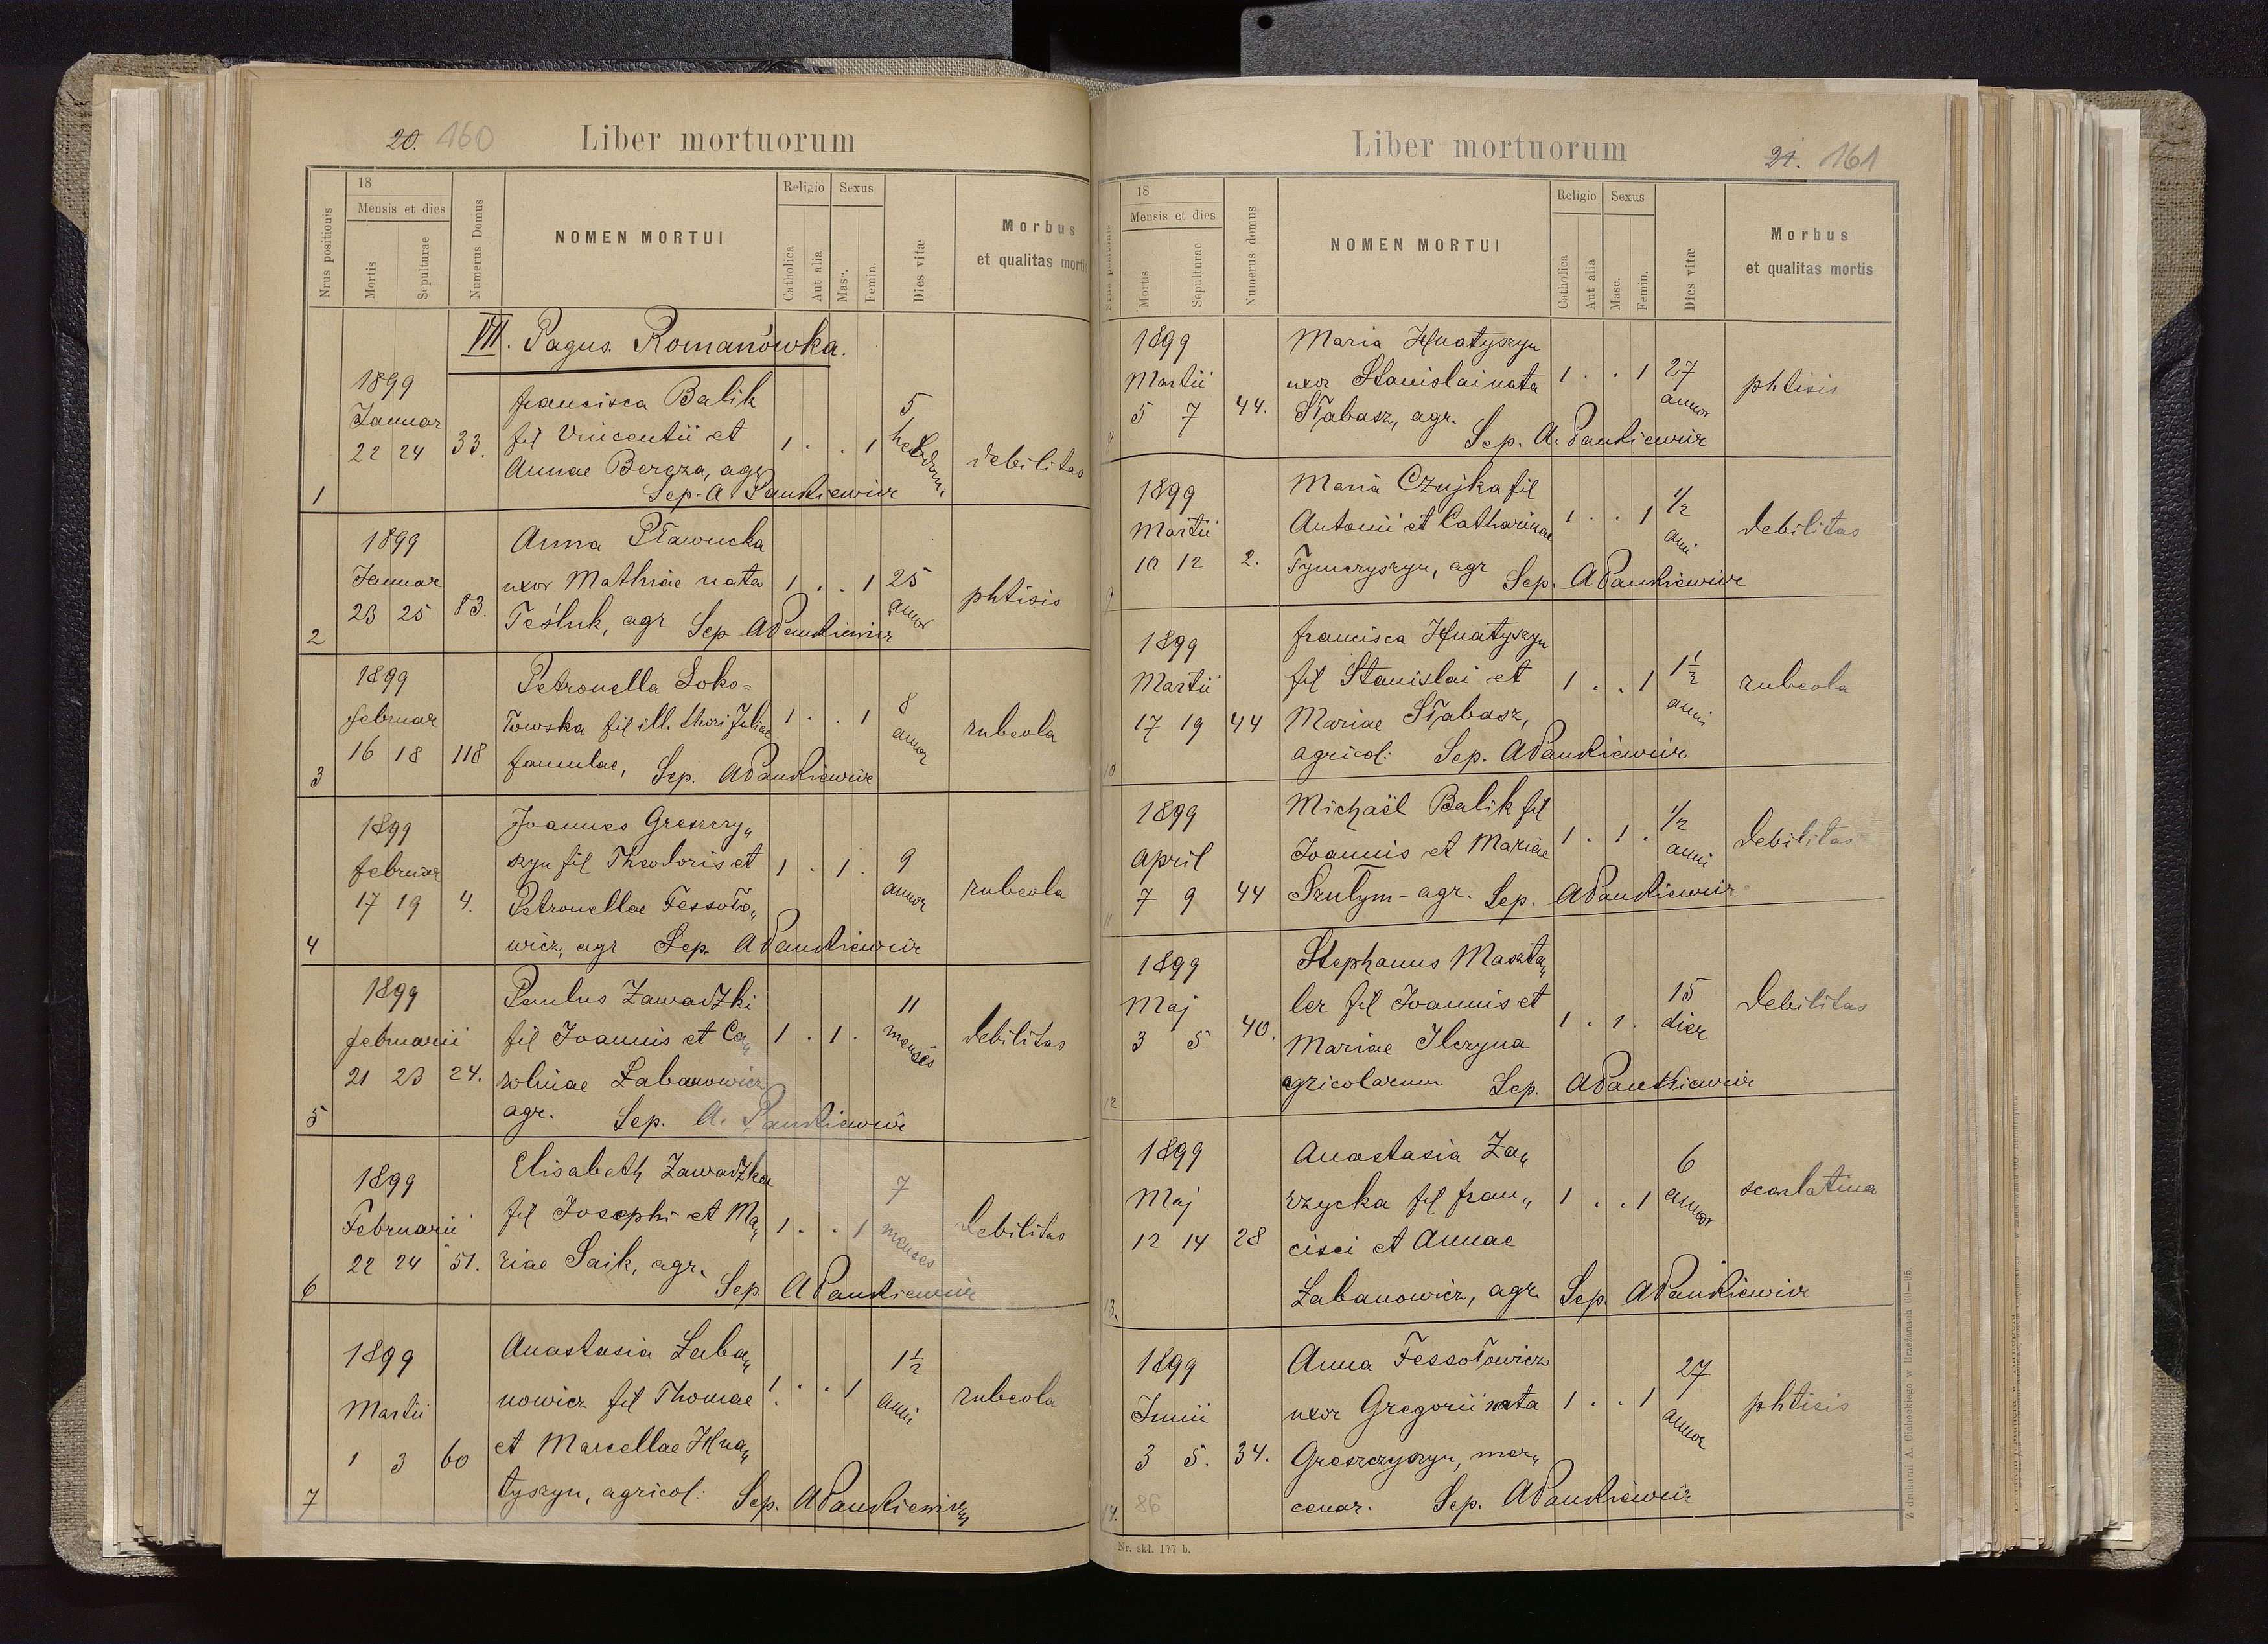 20. 160 Liber mortuorum
Nrus positionis
18
Mensis et dies
Mortis
Sepulturae
Numerus Domus
NOMEN MORTUI
Religio
Catholica
Aut alia
Sexus
Masc.
Femin.
Dies vitæ
Morbus
et qualitas mortis
VII. Pagus. Romanówka.
1899
Januar
22 24 33.
Francisca Balik
fil Vincentii et
Annae Bergza, agr
Sep. A Pankiewicz
1 . . 1
5
hebdom.
debilitas
1
1899
Januar
23 25 83.
Anna Pławucka
uxor Mathiae nata
Teśluk, agr Sep APankiewicz
1 . . 1
25
annor
phtisis
2
1899
Februar
16 18 118
Petronella Soko=
łowska fil ill. thori Juliae
famulae, Sep. APankiewicz
1 . . 1
8
annor
rubeola
3
1899
Februar
17 19 4.
Joannes Greszczy„
szyn fil Theodoris et
Petronellae Fessoło„
wicz, agr Sep. APankiewicz
1 . 1 .
9
annor
rubeola
4
1899
Februarii
21 23 24.
Paulus Zawadzki
fil Joannis et Ca„
rolinae Łabanowicz
agr. Sep. A. Pankiewicz
1 . 1 .
11
menses
debilitas
5
1899
Februarii
22 24 51.
Elisabeth Zawadzka
fil Josephi et Ma„
riae Saik, agr.
Sep. APankiewicz
1 . . 1
7
menses
debilitas
6
1899
Martii
1 3 60
Anastasia Łaba„
nowicz fil Thomae
et Marcellae Hna„
tyszyn, agricol: Sep. APankiewicz
1 . . 1
1 1/2
anni
rubeola
7
Liber mortuorum 21. 161
Nrus positionis
18
Mensis et dies
Mortis
Sepulturae
Numerus domus
NOMEN MORTUI
Religio
Catholica
Aut alia
Sexus
Masc.
Femin.
Dies vitæ
Morbus
et qualitas mortis
1899
Martii
5 7 44.
Maria Hnatyszyn
uxor Stanislai nata
Słabasz, agr.
Sep. A. Pankiewicz
1 . . 1
27
annor
phtisis
8
1899
Martii
10 12 2.
Maria Czujka fil
Antonii et Catharinae
Tymczyszyn, agr Sep. APankiewicz
1 . . 1
1/2
anni
debilitas
9
1899
Martii
17 19 44
Francisca Hnatyszyn
fil Stanislai et
Mariae Słabasz,
agricol: Sep. APankiewicz
1 . . 1
1 1/2
anni
rubeola
10
1899
April
7 9 44
Michaël Balik fil
Joannis et Mariae
Szułym - agr. Sep. APankiewicz
1 . 1 .
1/2
anni
debilitas
11
1899
Maj
3 5 40.
Stephanus Maszta„
ler fil Joannis et
Mariae Ilczyna
agricolarum Sep. APankiewicz
1 . 1 .
15
dier
debilitas
12
1899
Maj
12 14 28
Anastasia Za„
rzycka fil Fran„
cisci et Annae
Łabanowicz, agr. Sep. APankiewicz
1 . . 1
6
annor
scarlatina
13.
1899
Junii
3 5. 34.
Anna Fessołowicz
uxor Gregorii nata
Greszczyszyn, mer„
cenar. Sep. APankiewicz
1 . . 1
27
annor
phtisis
14.
86
Nr. skł. 177 b.
Z drukarni A. Cichockiego w Brzeżanach 60—95.